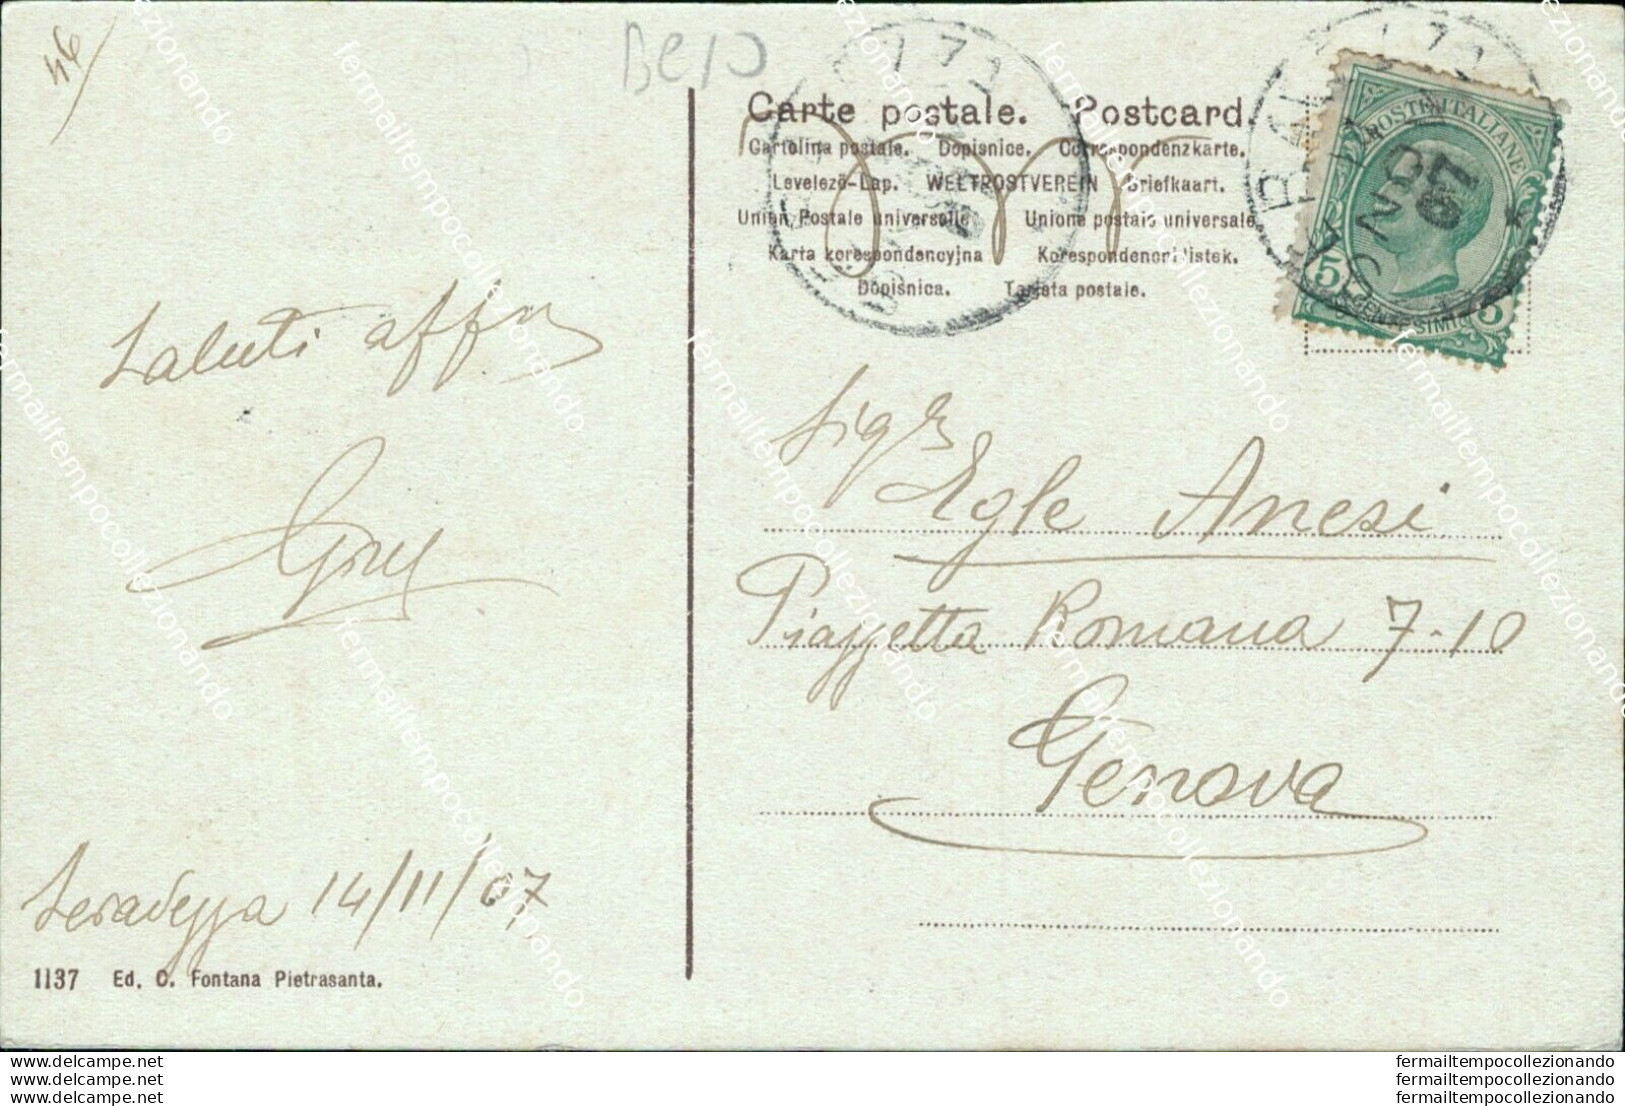 46
Carte postale. Postcard.
Cartolina postale. Dopisnice. Correspondenzkarte.
Levelezö-Lap. WELTPOSTVEREIN Briefkaart.
Union Postale universelle. Unione postale universale.
Karta korespondencyjna Korespondenční listek.
Dopisnica. Tarjeta postale.
POSTE ITALIANE
5 CENTESIMI 5
07
Saluti aff
Sigra
Egle Anesi
Piazzetta Romana 7-10
Genova
Seravezza 14/11/07
1137 Ed. C. Fontana Pietrasanta.
fermailtempocollezionando
www.delcampe.net fermailtempocollezionando
www.delcampe.net fermailtempocollezionando
www.delcampe.net fermailtempocollezionando